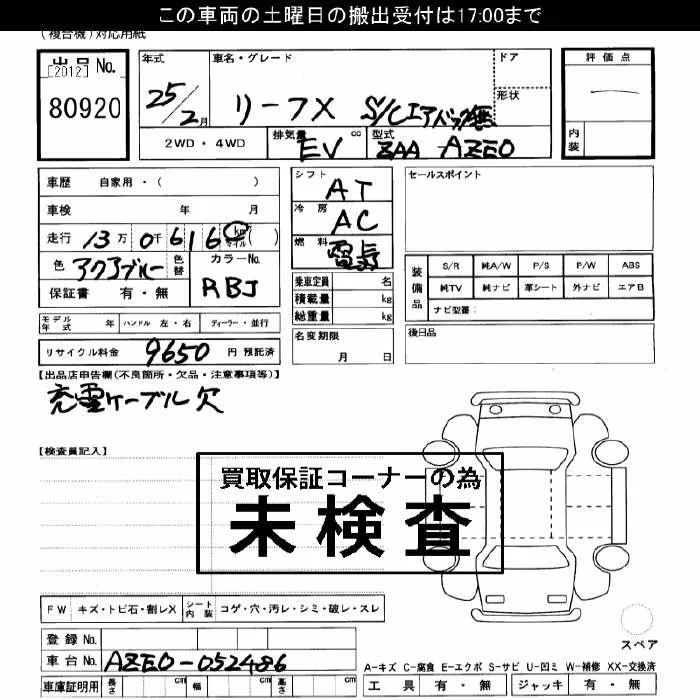 この車両の土曜日の搬出受付は17:00まで
(複合機)対応用紙
出品 No.
[2012]
80920
年式
25/2月
車名・グレード
リーフX S/Cエアバック無
ドア
形状
評価点
内装
2WD・4WD
排気量 EV cc
型式 ZAA AZE0
車歴 自家用・( )
車検 年 月
走行 13万 0千 616 km マイル ( )
色 アクアブルー 色替
カラーNo. RBJ
保証書 有・無
シフト AT
冷房 AC
燃料 電気
乗車定員 名
積載量 kg
総重量 kg
名変期限
月 日
セールスポイント
装備品
S/R 純A/W P/S P/W ABS
純TV 純ナビ 革シート 外ナビ エアB
ナビ型番:
後日品
モデル年式 年 ハンドル 左・右 ディーラー・並行
リサイクル料金 9650 円 預託済
【出品店申告欄(不良箇所・欠品・注意事項等)】
充電ケーブル欠
【検査員記入】
買取保証コーナーの為
未検査
FW キズ・トビ石・割レX シート内装 コゲ・穴・汚レ・シミ・破レ・スレ
登録 No.
車台 No. AZE0-052486
車庫証明用 長さ cm 幅 cm 高さ cm
スペア
A-キズ C-腐食 E-エクボ S-サビ U-凹ミ W-補修 XX-交換済
工具 有・無 ジャッキ 有・無